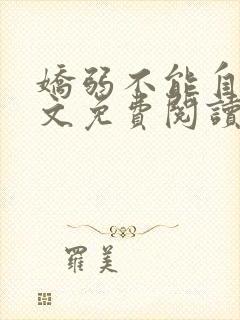 嬌弱不能自
文免費閱讀
羅美